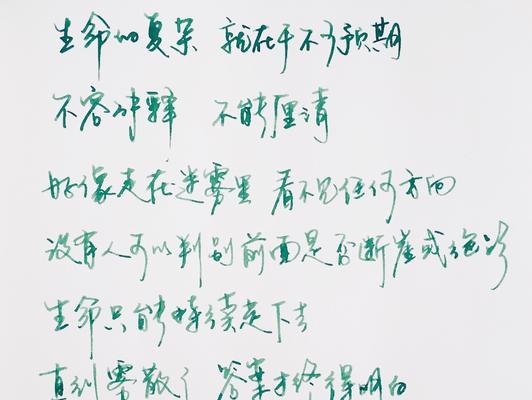 生命的复杂 就在于不可预期
不容冲释 不能厘清
好像走在迷雾里 看不见任何方向
没有人可以判别前面是否断崖或绝谷
生命只能持续走下去
直到雾散了 答案才终得明白